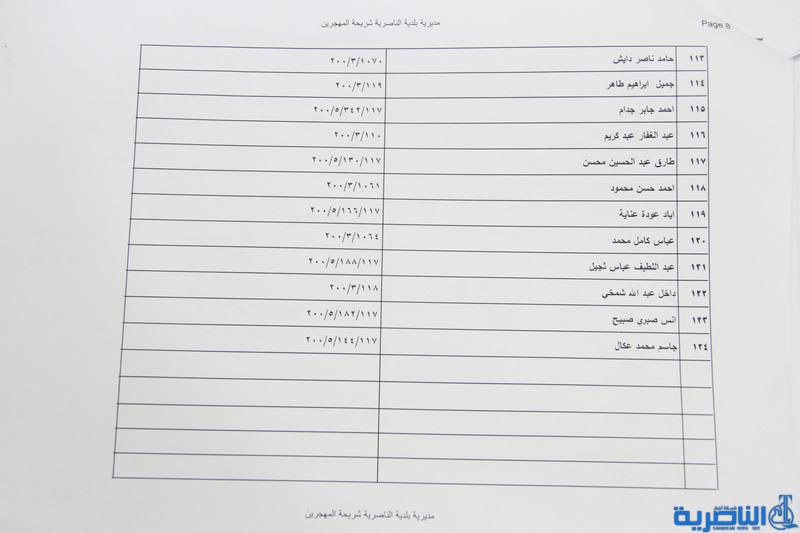 Page 8
مديرية بلدية الناصرية شريحة المهجرين
١١٣ حامد ناصر دايش ٢٠٠/٣/١٠٧٠
١١٤ جميل ابراهيم طاهر ٢٠٠/٣/١١٩
١١٥ احمد جابر جدام ٢٠٠/٥/٣٤٢/١١٧
١١٦ عبد الغفار عبد كريم ٢٠٠/٣/١١٠
١١٧ طارق عبد الحسين محسن ٢٠٠/٥/١٣٠/١١٧
١١٨ احمد حسن محمود ٢٠٠/٣/١٠٦١
١١٩ اياد عودة عناية ٢٠٠/٥/١٦٦/١١٧
١٢٠ عباس كامل محمد ٢٠٠/٣/١٠٦٤
١٢١ عبد اللطيف عباس ثجيل ٢٠٠/٥/١٨٨/١١٧
١٢٢ داخل عبد الله شمخي ٢٠٠/٣/١١٨
١٢٣ انس صبري صبيح ٢٠٠/٥/١٨٢/١١٧
١٢٤ جاسم محمد عكال ٢٠٠/٥/١٤٤/١١٧
مديرية بلدية الناصرية شريحة المهجرين
شبكة أخبار
الناصرية
NASIRIEAH NEWS NET